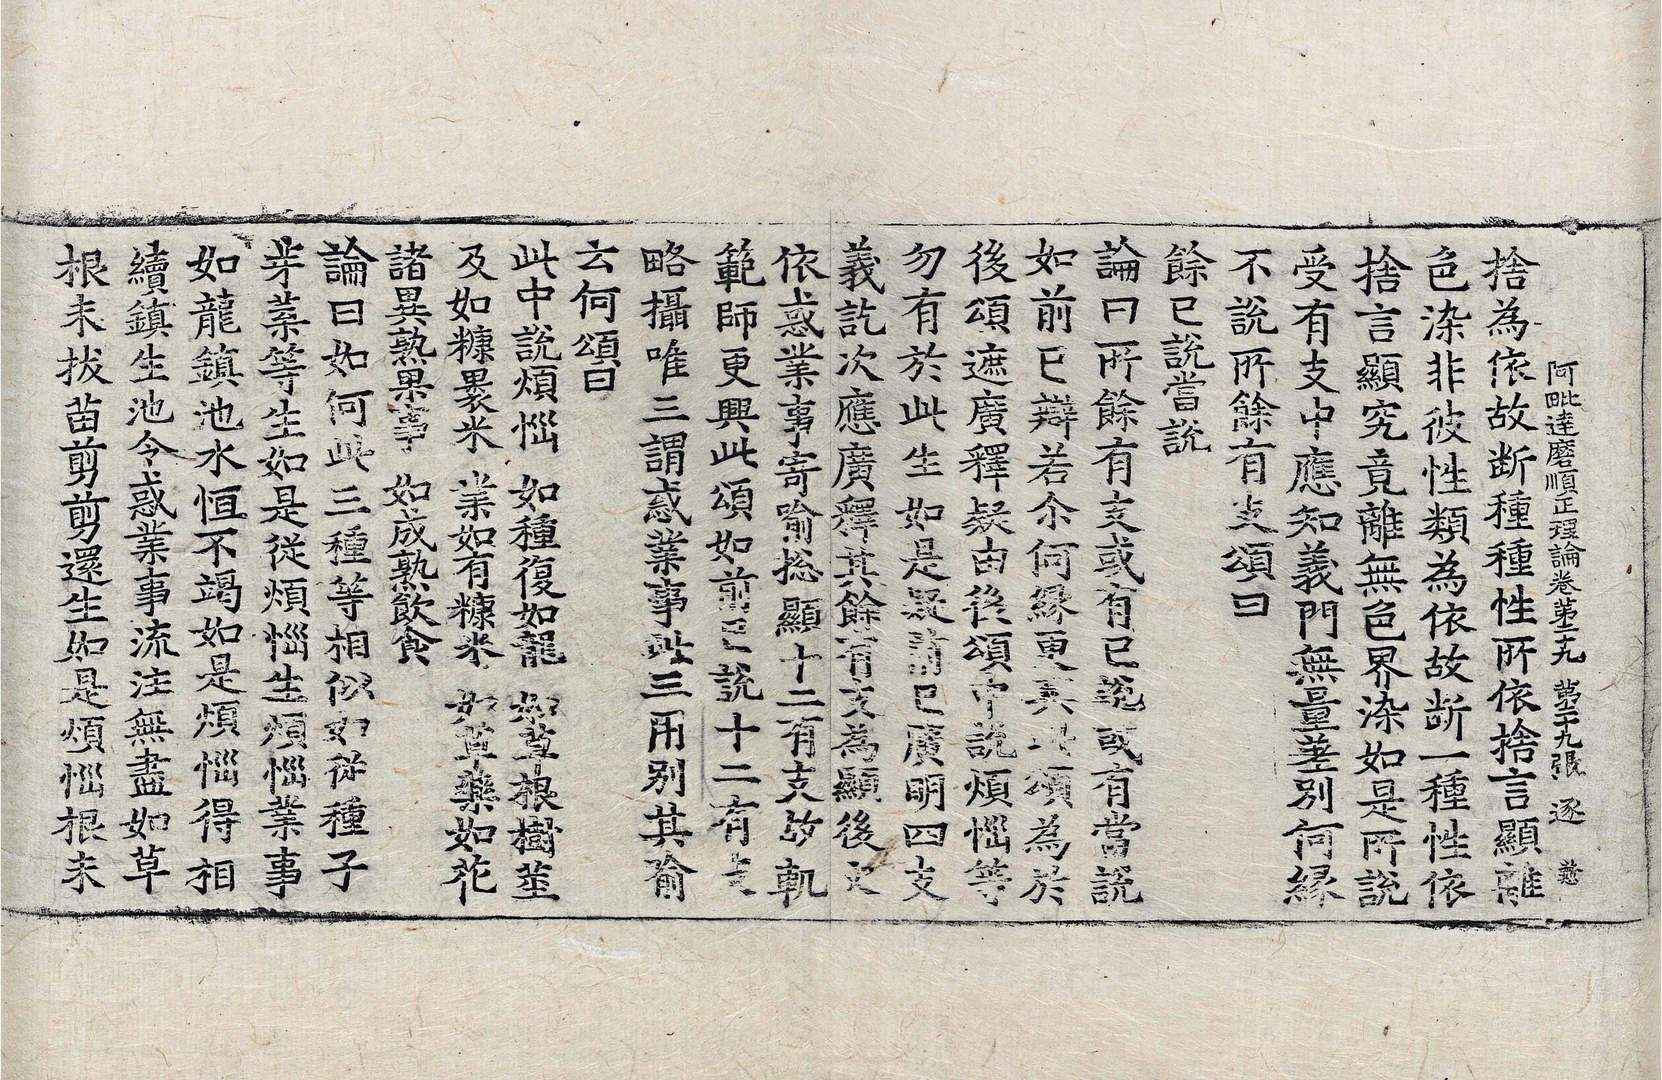 阿毗達磨順正理論卷第二十九 第二十九張 逐
捨為依故断種種性所依捨言顯離
色染非彼性類為依故断一種性依
捨言顯究竟離無色界染如是所說
受有支中應知義門無量差別何緣
不說所餘有支頌曰
餘已說當說
論曰所餘有支或有已說或有當說
如前已辯若尒何緣更興此頌為於
後頌遮廣釋疑由後頌中說煩惱等
勿有於此生如是疑前已廣明四支
義訖次應廣釋其餘有支為顯後文
依惑業事寄喻捴顯十二有支故軌
範師更興此頌如前已說十二有支
略攝唯三謂惑業事此三用别其喻
云何頌曰
此中說煩惱 如種復如龍 如草根樹莖
及如糠裹米 業如有糠米 如草藥如花
諸異熟果事 如成熟飲食
論曰如何此三種等相似如從種子
芽葉等生如是從煩惱生煩惱業事
如龍鎮池水恒不竭如是煩惱得相
續鎮生池令惑業事流注無盡如草
根未拔苗剪剪還生如是煩惱根未